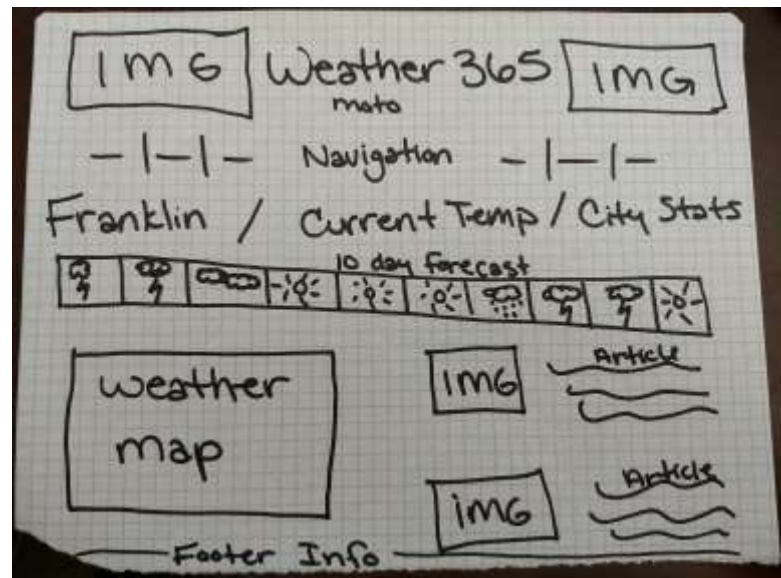 IMG Weather 365 IMG
moto
Navigation
Franklin / Current Temp / City Stats
10 day forecast
weather
map
IMG Article
IMG Article
Footer Info